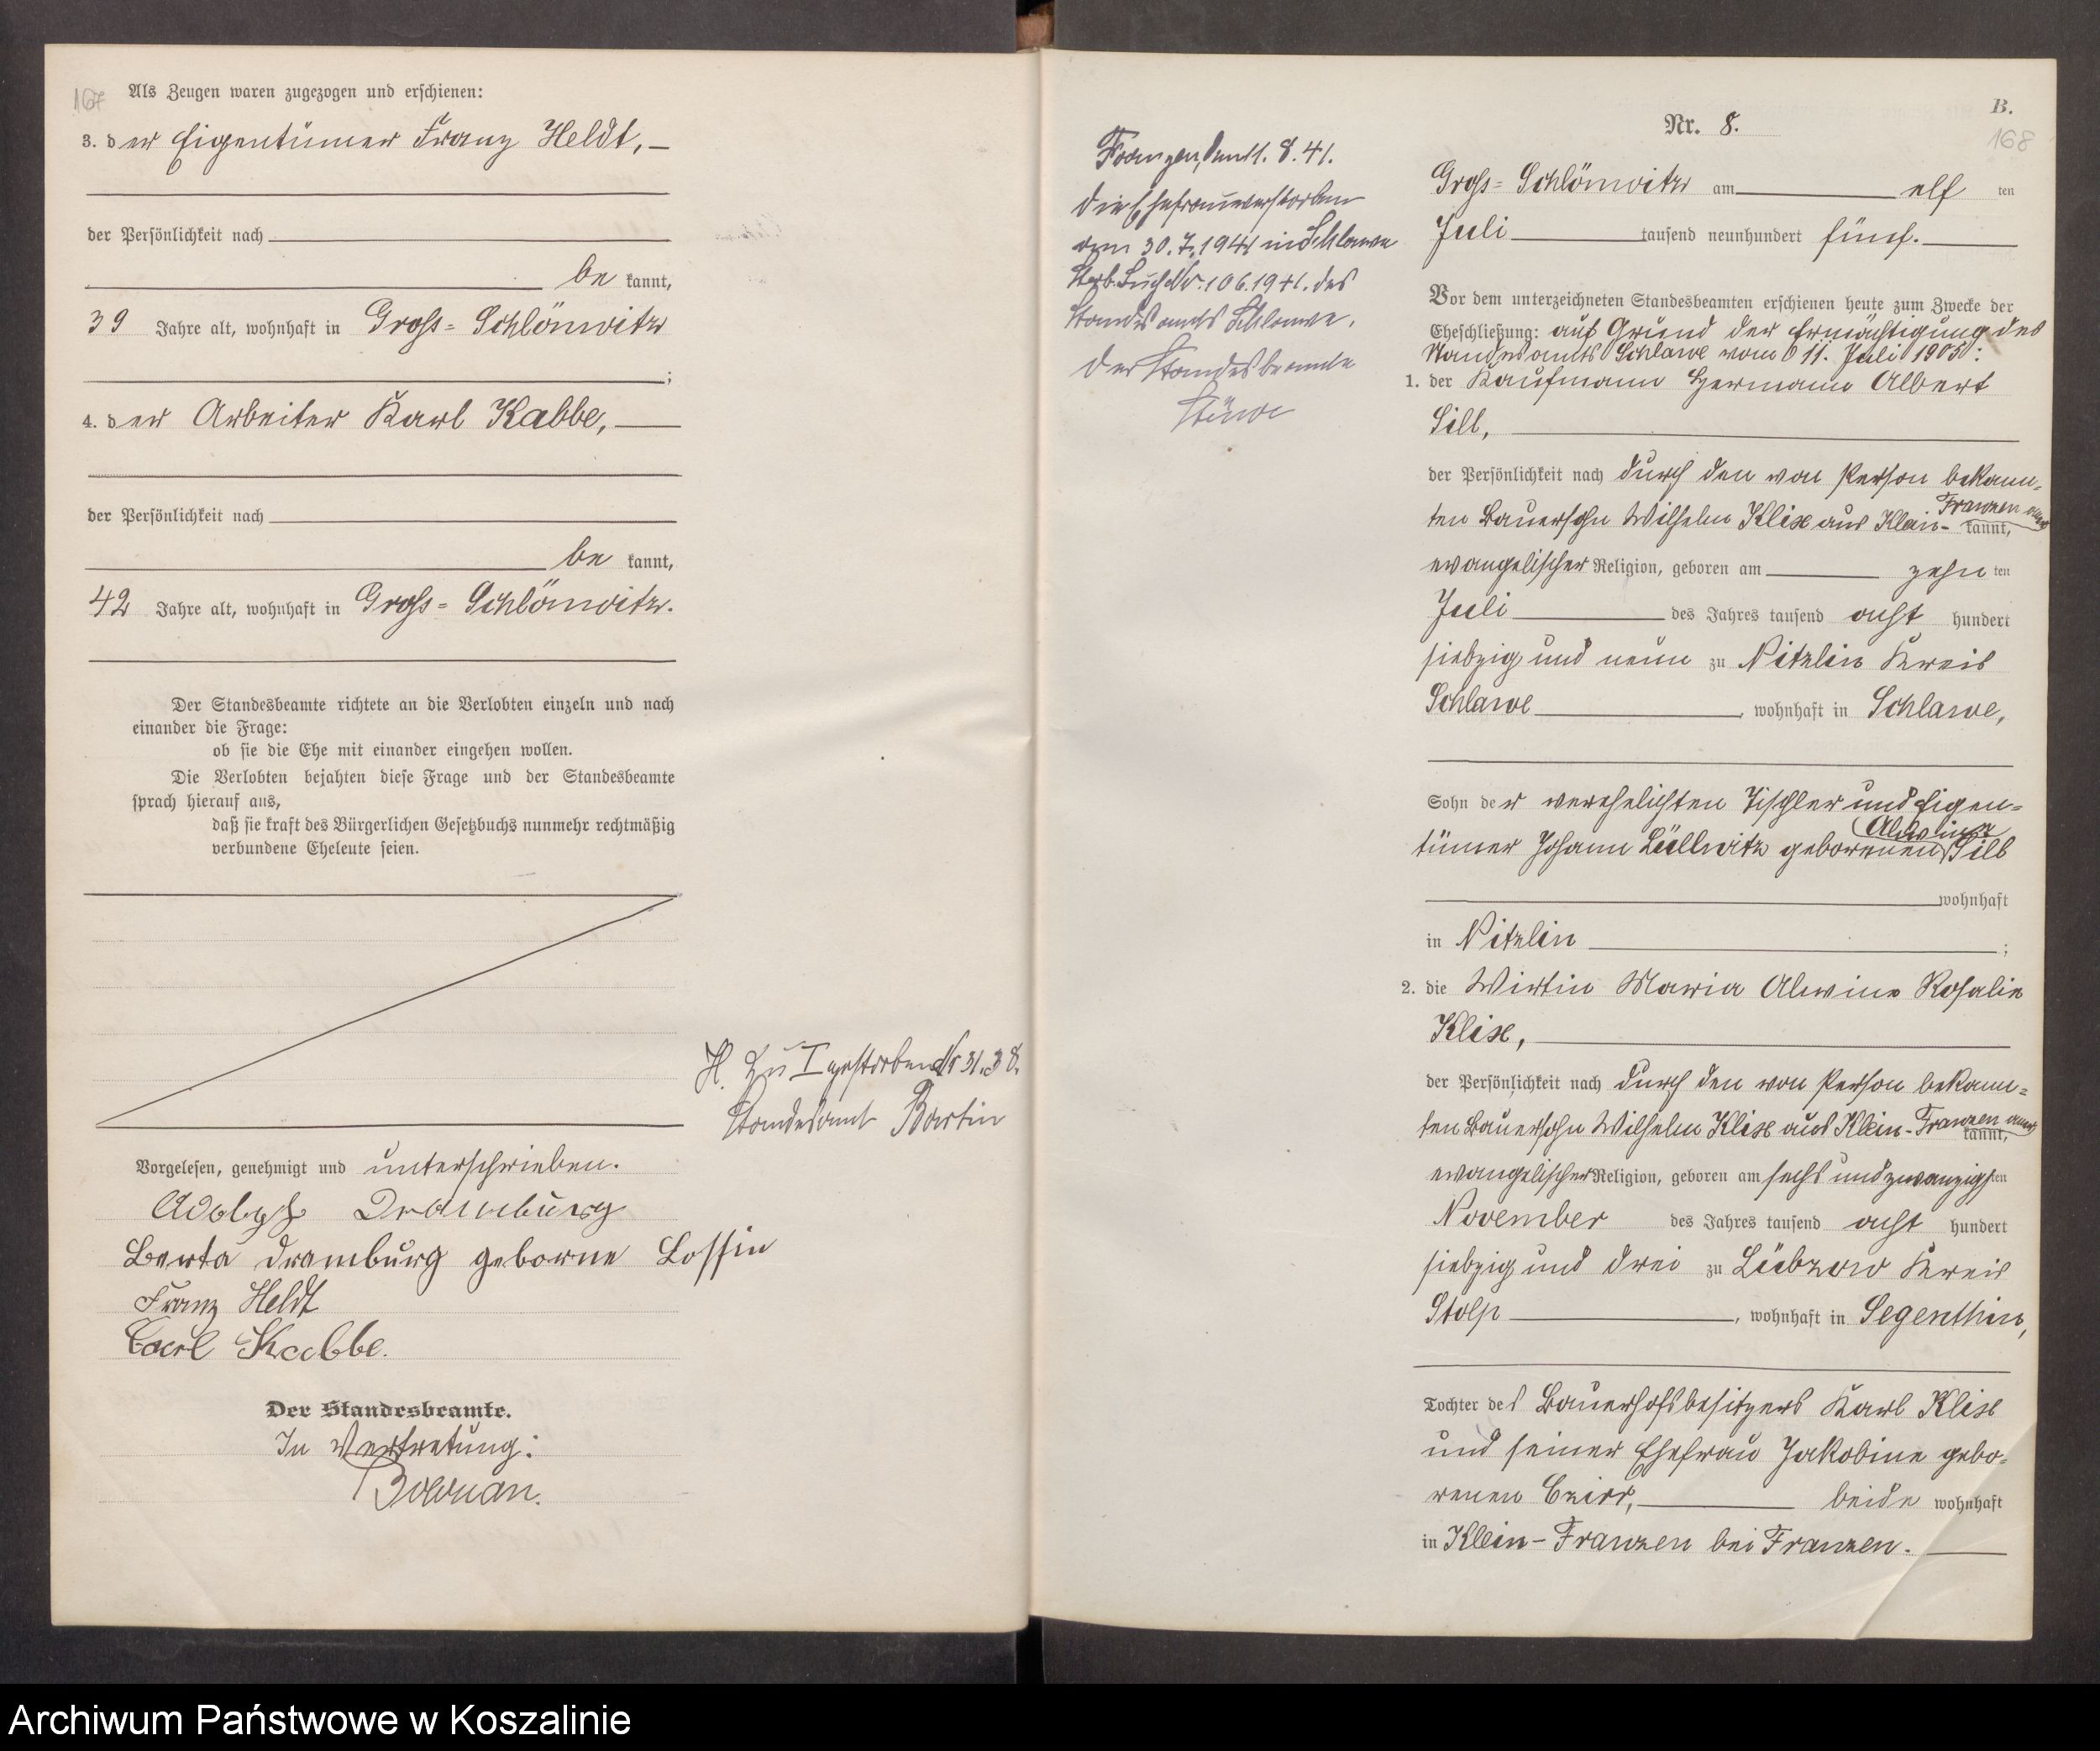 167
Als Zeugen waren zugezogen und erschienen:
3. der Eigentümer Franz Heldt,
der Persönlichkeit nach
be kannt,
39 Jahre alt, wohnhaft in Gross-Schlönwitz
;
4. der Arbeiter Karl Kabbe,
der Persönlichkeit nach
be kannt,
42 Jahre alt, wohnhaft in Gross-Schlönwitz.
Der Standesbeamte richtete an die Verlobten einzeln und nach
einander die Frage:
ob sie die Ehe mit einander eingehen wollen.
Die Verlobten bejahten diese Frage und der Standesbeamte
sprach hierauf aus,
daß sie kraft des Bürgerlichen Gesetzbuchs nunmehr rechtmäßig
verbundene Eheleute seien.
H. Zu I gestorben Nr 31.38.
Standesamt Bartin
Vorgelesen, genehmigt und unterschrieben.
Adolf Dramburg
Berta Dramburg geborne Lossin
Franz Heldt
Carl Kabbe.
Der Standesbeamte.
In Vertretung:
B.
168
Nr. 8.
Franzen, den 11. 8. 41.
Die Ehefrau verstorben
am 30. 7. 1941 in Schlawe
Sterb. Buch Nr. 106.1941. des
Standesamts Schlawe.
Der Standesbeamte
Stüwe
Gross-Schlönwitz am elf ten
Juli tausend neunhundert fünf.
Vor dem unterzeichneten Standesbeamten erschienen heute zum Zwecke der
Eheschließung: auf Grund der Ermächtigung des
Standesamts Schlawe vom 11. Juli 1905:
1. der Kaufmann Hermann Albert
Sill,
der Persönlichkeit nach durch den von Person bekann-
ten Bauersohn Wilhelm Klix aus Klein-Franzen aner kannt,
evangelischer Religion, geboren am zehn ten
Juli des Jahres tausend acht hundert
siebzig und neun zu Nitzlin Kreis
Schlawe, wohnhaft in Schlawe,
Sohn der verehelichten Tischler und Eigen-
tümer Johann Lüllwitz geborenen Alwine Sill
wohnhaft
in Nitzlin ;
2. die Wirtin Maria Alwine Rosalie
Klix,
der Persönlichkeit nach durch den von Person bekann-
ten Bauersohn Wilhelm Klix aus Klein-Franzen aner kannt,
evangelischer Religion, geboren am sechs und zwanzigsten
November des Jahres tausend acht hundert
siebzig und drei zu Lübzow Kreis
Stolp, wohnhaft in Segenthin,
Tochter des Bauerhofsbesitzers Karl Klix
und seiner Ehefrau Jakobine gebo-
renen beide wohnhaft
in Klein-Franzen bei Franzen.
Archiwum Państwowe w Koszalinie